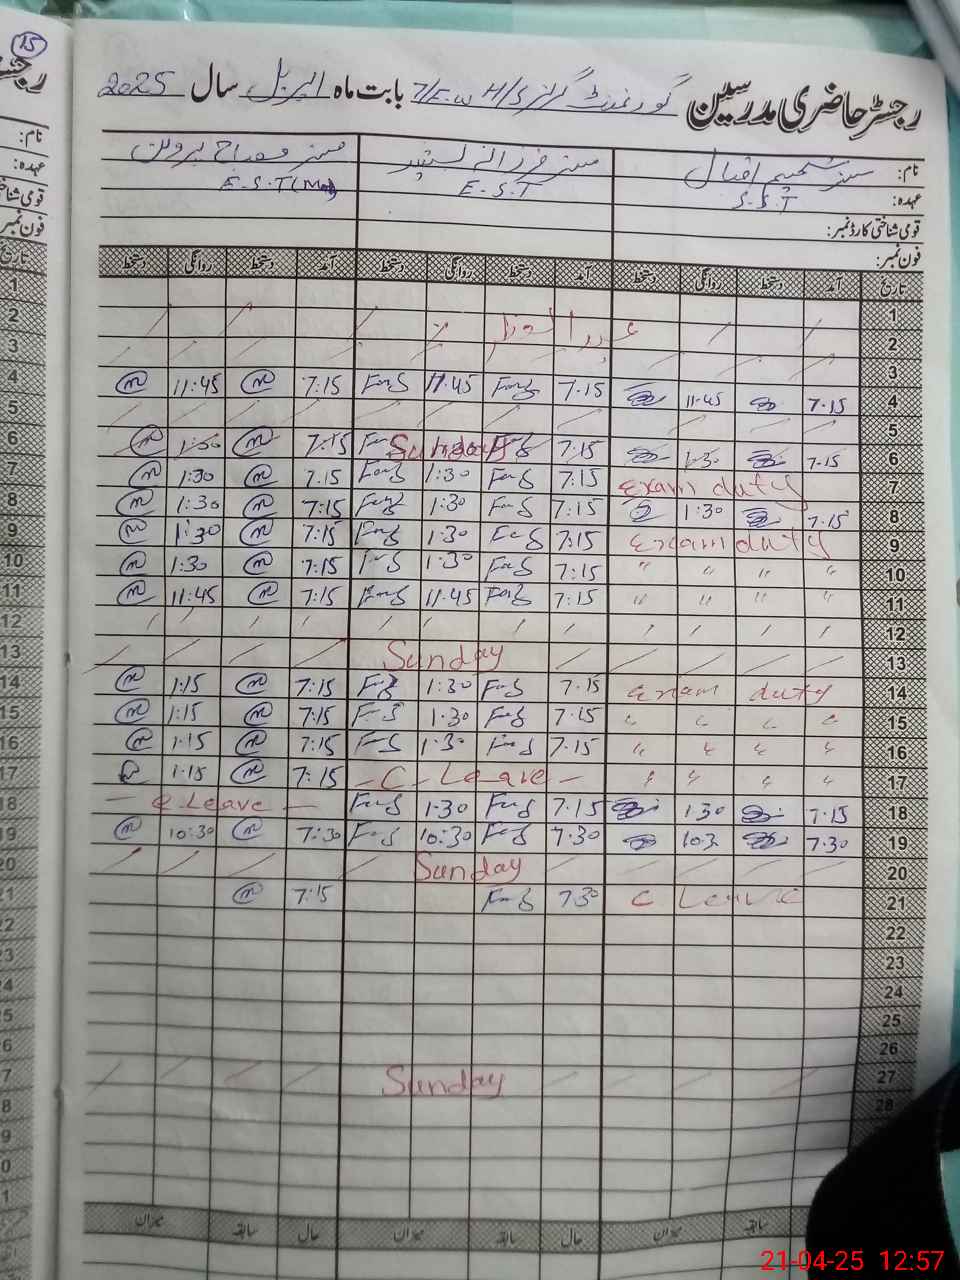 رجسٹر حاضری مدرسین گورنمنٹ گرلز H/S 7/E.W بابت ماہ اپریل سال 2025
15
نام: مسز شمیم اقبال مسز فرزانہ بشیر مسز مصباح پروین
عہدہ: S.S.T E.S.T E.S.T (M)
قومی شناختی کارڈ نمبر:
فون نمبر:
تاریخ آمد دستخط روانگی دستخط آمد دستخط روانگی دستخط آمد دستخط روانگی دستخط
1
2 عید الفطر
3
4 7.15 11.45 7.15 FarS 11.45 FarS 7.15 11:45
5
6 7.15 1.30 7.15 Sunday 1:30 7:15 1:30
7 exam duty 7:15 FarS 1:30 FarS 7.15 1:30
8 7.15 1:30 7:15 FarS 1:30 FarS 7:15 1:30
9 Exam duty 7:15 FarS 1:30 FarS 7:15 1:30
10 " " " " 7:15 FarS 1:30 FarS 7:15 1:30
11 " " " " 7:15 FarS 11:45 FarS 7:15 11:45
12
13 Sunday
14 exam duty 7.15 FarS 1:30 FarS 7:15 1:15
15 " " " " 7.15 FarS 1:30 FarS 7:15 1:15
16 " " " " 7.15 FarS 1:30 FarS 7:15 1.15
17 " " " " - C - Leave - 7:15 1.15
18 7.15 1.30 7.15 FarS 1.30 FarS - C Leave -
19 7.30 10.3 7.30 FarS 10:30 FarS 7:30 10:30
20 Sunday
21 C Leave 7.30 FarS 7:15
22
23
24
25
26
27 Sunday
28
سابقہ میزان حال سابقہ میزان حال سابقہ میزان
21-04-25 12:57